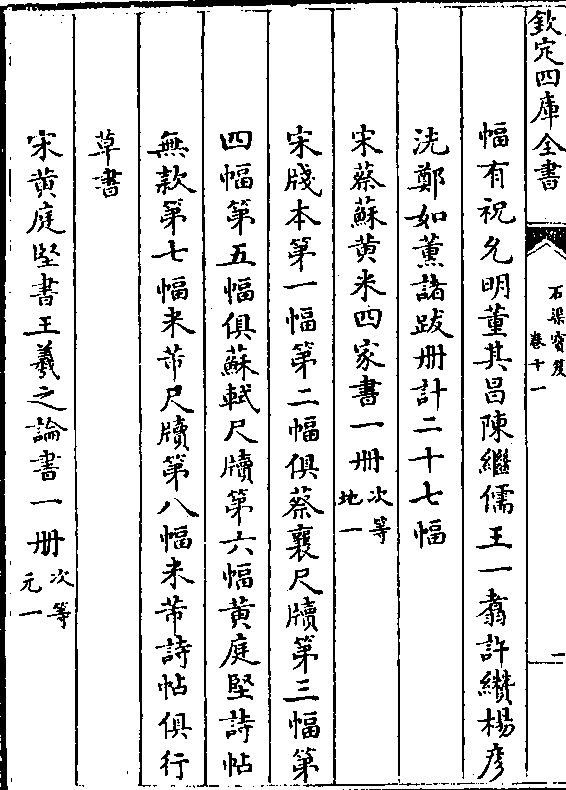 欽定四庫全書
石渠寳笈
卷十一
一
幅有祝允明董其昌陳繼儒王一鶱許纉楊彦
洗鄭如薫諸跋册計二十七幅
宋蔡蘇黄米四家書一册次等地一
宋牋本第一幅第二幅俱蔡襄尺牘第三幅第
四幅第五幅俱蘇軾尺牘第六幅黄庭堅詩帖
無款第七幅米芾尺牘第八幅米芾詩帖俱行
草書
宋黄庭堅書王羲之論書一册次等元一